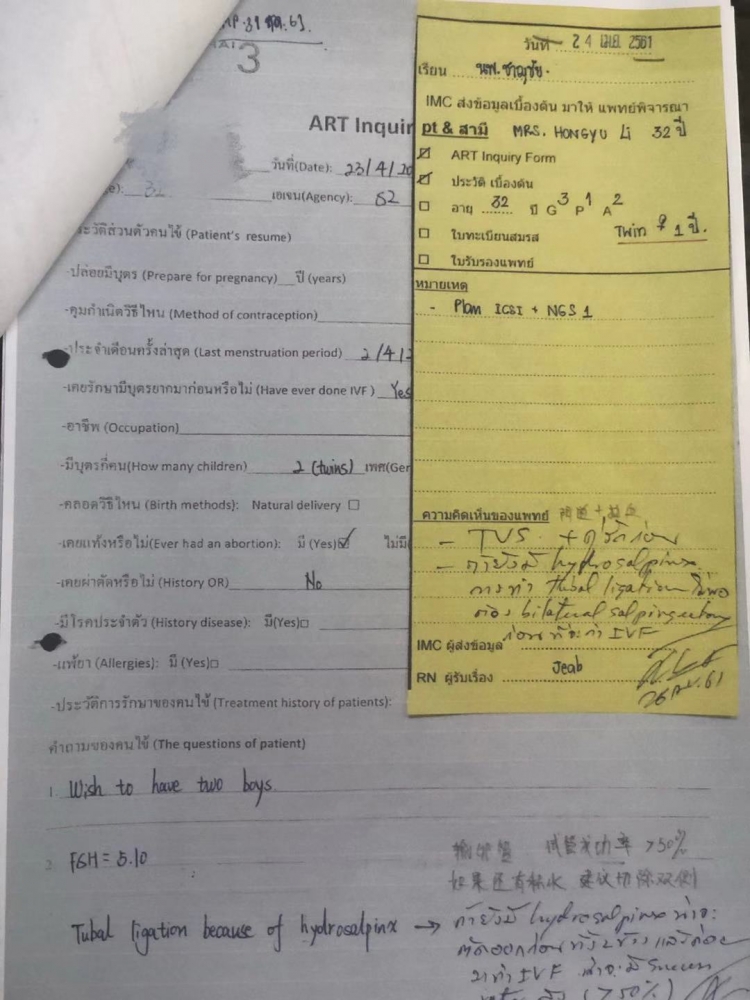 3
ART Inquir
วันที่(Date): 23/4/20
เอเจน(Agency): S2
ะวัติส่วนตัวคนไข้ (Patient's resume)
-ปล่อยมีบุตร (Prepare for pregnancy) ปี (years)
-คุมกำเนิดวิธีไหน (Method of contraception)
-ประจำเดือนครั้งล่าสุด (Last menstruation period) 2/4/2
-เคยรักษามีบุตรยากมาก่อนหรือไม่ (Have ever done IVF) Yes
-อาชีพ (Occupation)
-มีบุตรกี่คน(How many children) 2 (twins) เพศ(Ger
-คลอดวิธีไหน (Birth methods): Natural delivery ☐
-เคยแท้งหรือไม่(Ever had an abortion): มี (Yes)☑ ไม่มี(
-เคยผ่าตัดหรือไม่ (History OR) No
-มีโรคประจำตัว (History disease): มี(Yes)☐
-แพ้ยา (Allergies): มี (Yes)☐
-ประวัติการรักษาของคนไข้ (Treatment history of patients):
คำถามของคนไข้ (The questions of patient)
1. Wish to have two boys.
2. FSH = 5.10
输卵管 试管成功率 >50%
如果还有积水 建议切除双侧
Tubal ligation because of hydrosalpinx → ถ้ายังมี hydrosalpinx
(>50%)
วันที่ 24 เมย 2561
เรียน นพ.ชาญชัย.
IMC ส่งข้อมูลเบื้องต้น มาให้ แพทย์พิจารณา
pt & สามี MRS. HONGYU Li 32 ปี
☑ ART Inquiry Form
☑ ประวัติ เบื้องต้น
☐ อายุ 32 ปี G3 P1 A2
☐ ใบทะเบียนสมรส Twin ♀ 1 ปี.
☐ ใบรับรองแพทย์
หมายเหตุ
- Plan ICSI + NGS 1
ความคิดเห็นของแพทย์
- TVS +
- ถ้ายังมี hydrosalpinx
การทำ tubal ligation ไม่พอ
ต้อง bilateral salpingectomy
ก่อนที่จะทำ IVF
IMC ผู้ส่งข้อมูล
RN ผู้รับเรื่อง Jeab